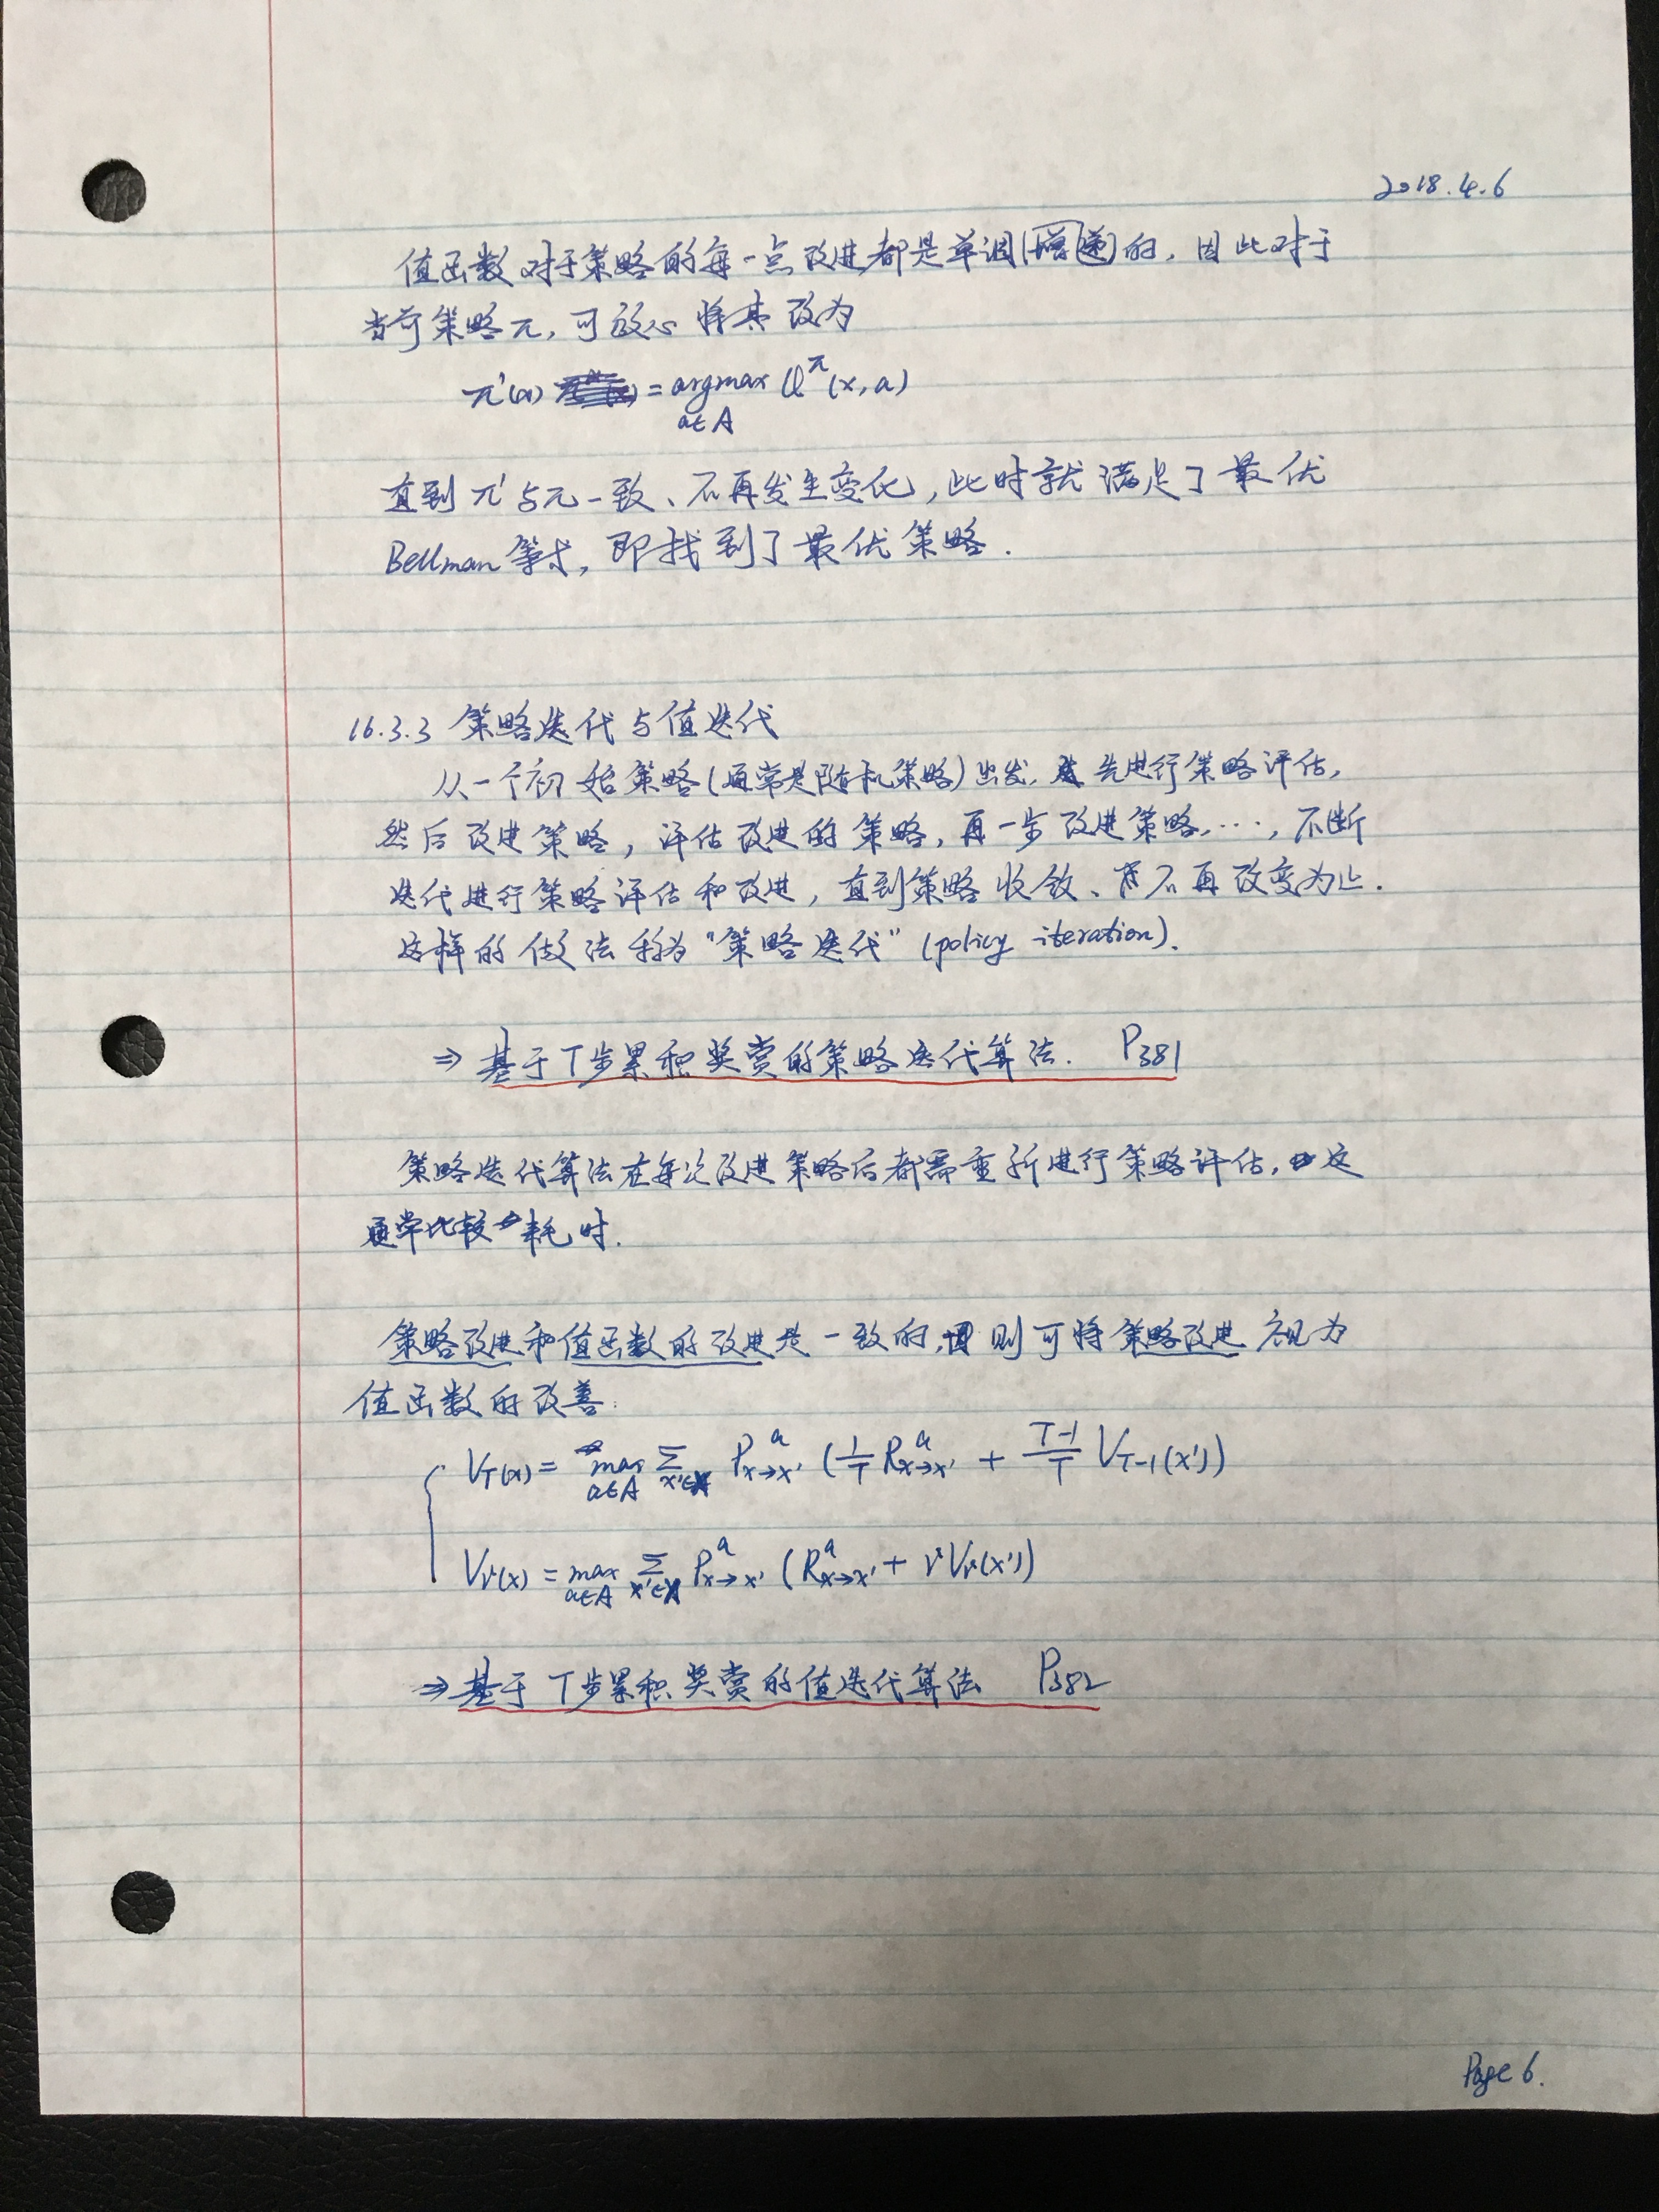 2018.4.6
值函数对于策略的每一点改进都是单调递增的, 因此对于
当前策略π, 可放心将其改为
π'(x) = argmax Q^π(x,a)
a∈A
直到π'与π一致、不再发生变化, 此时就满足了最优
Bellman等式, 即找到了最优策略.
16.3.3 策略迭代与值迭代
从一个初始策略(通常是随机策略)出发, 先进行策略评估,
然后改进策略, 评估改进的策略, 再一步改进策略, …, 不断
迭代进行策略评估和改进, 直到策略收敛、不再改变为止.
这样的做法称为“策略迭代” (policy iteration).
⇒ 基于T步累积奖赏的策略迭代算法. P381
策略迭代算法在每次改进策略后都需重新进行策略评估, 这
通常比较耗时.
策略改进和值函数的改进是一致的, 则可将策略改进视为
值函数的改善:
V_T(x) = max Σ P^a_{x→x'} (1/T R^a_{x→x'} + T-1/T V_{T-1}(x'))
a∈A x'∈X
V_γ(x) = max Σ P^a_{x→x'} (R^a_{x→x'} + γV_γ(x'))
a∈A x'∈X
⇒ 基于T步累积奖赏的值迭代算法 P382
Page 6.